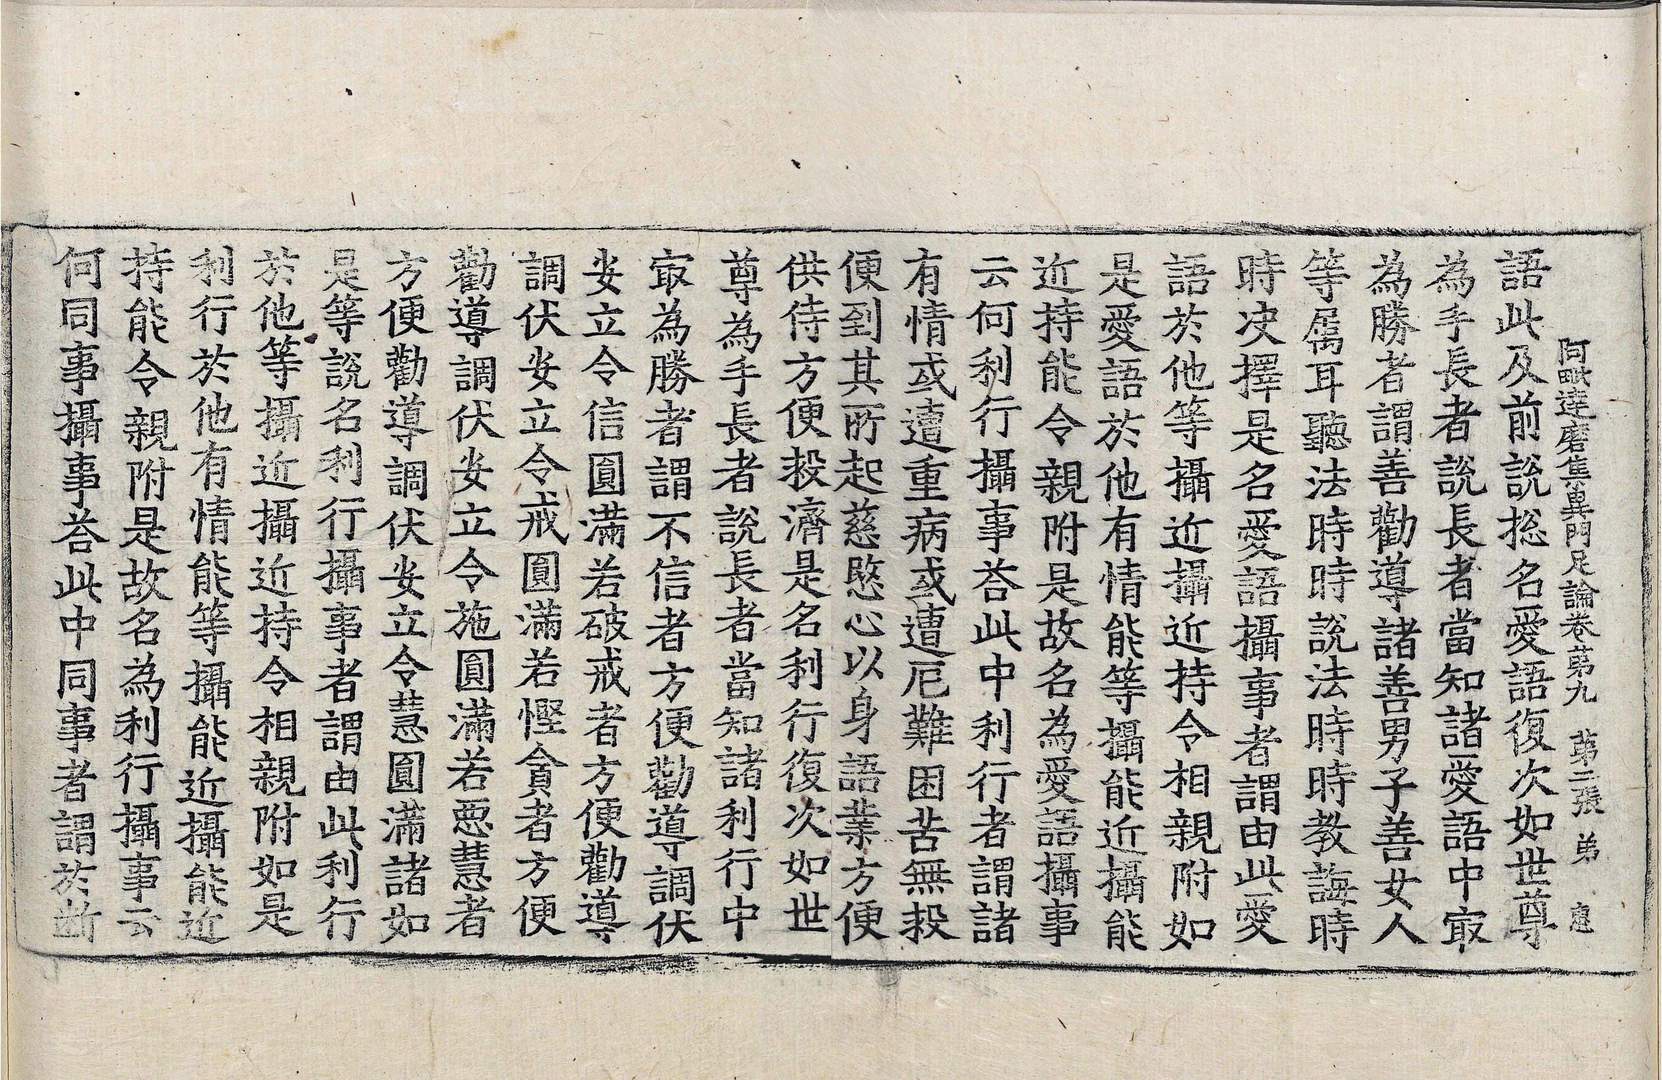 阿毗達磨集異門足論卷第九 第二張 弟
語此及前說捴名愛語復次如世尊
為手長者說長者當知諸愛語中㝡
為勝者謂善勸導諸善男子善女人
等属耳聽法時時說法時時教誨時
時决擇是名愛語攝事者謂由此愛
語於他等攝近攝近持令相親附如
是愛語於他有情能等攝能近攝能
近持能令親附是故名為愛語攝事
云何利行攝事荅此中利行者謂諸
有情或遭重病或遭厄難困苦無投
便到其所起慈愍心以身語業方便
供侍方便投濟是名利行復次如世
尊為手長者說長者當知諸利行中
㝡為勝者謂不信者方便勸導調伏
安立令信圓滿若破戒者方便勸導
調伏安立令戒圓滿若慳貪者方便
勸導調伏安立令施圓滿若惡慧者
方便勸導調伏安立令慧圓滿諸如
是等說名利行攝事者謂由此利行
於他等攝近攝近持令相親附如是
利行於他有情能等攝能近攝能近
持能令親附是故名為利行攝事云
何同事攝事荅此中同事者謂於斷